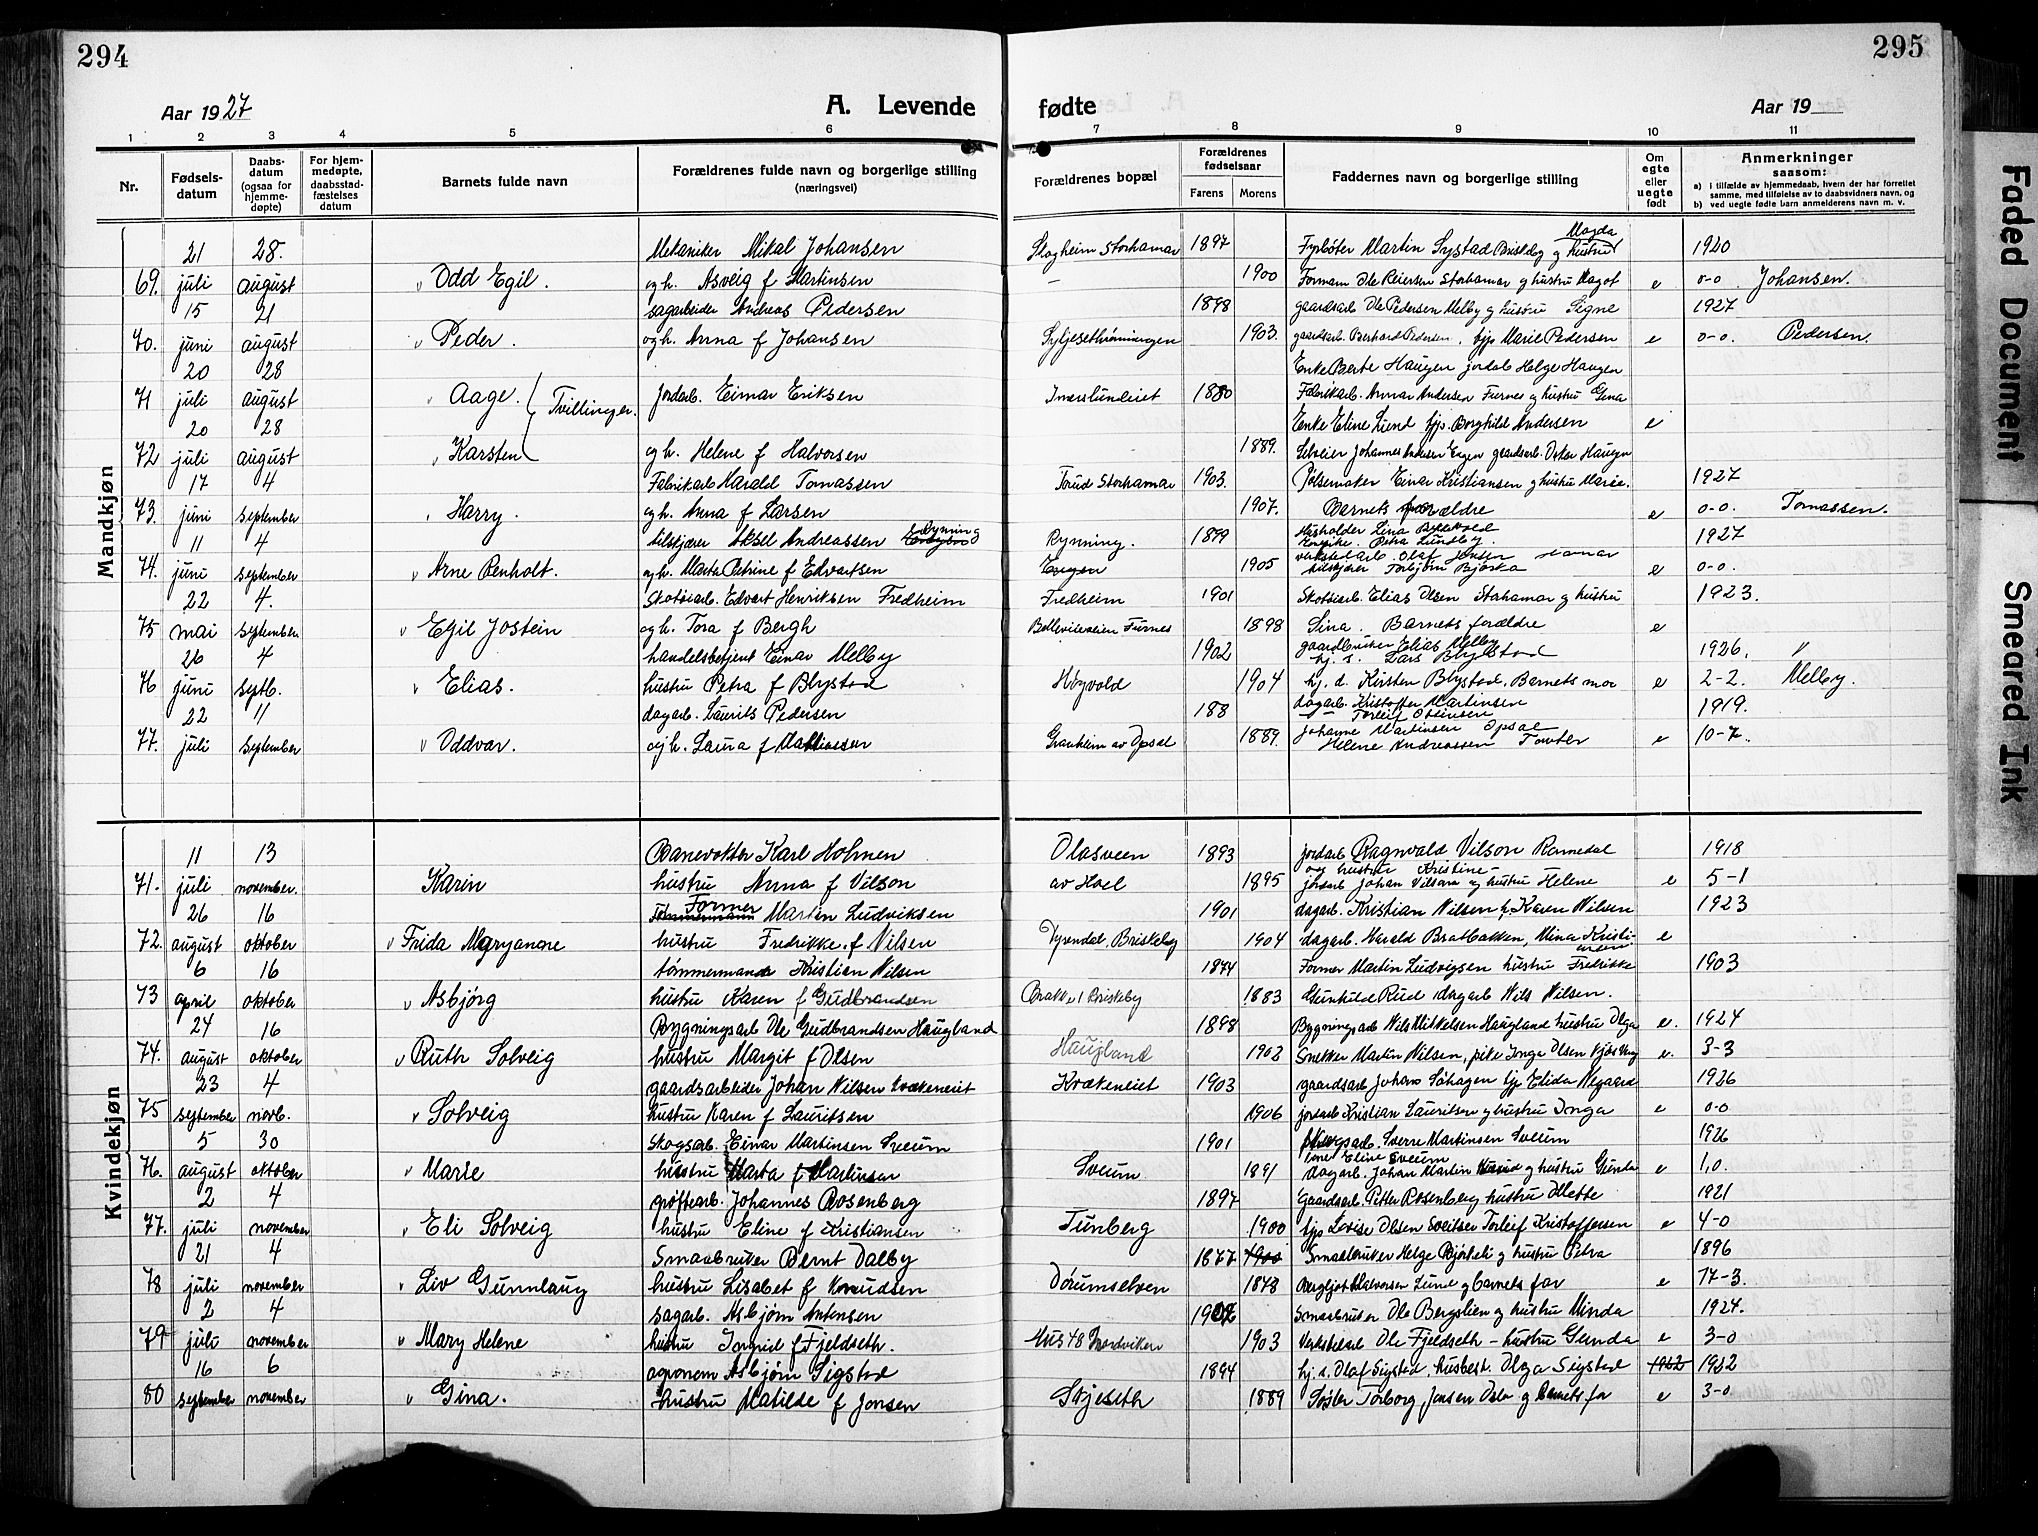 294
Aar 1927
A. Levende
1 2 3 4 5 6
Nr.
Fødsels-
datum
Daabs-
datum
(ogsaa for
hjemme-
døpte)
For hjem-
medøpte,
daabsstad-
fæstelses
datum
Barnets fulde navn
Forældrenes fulde navn og borgerlige stilling
(næringsvei)
Mandkjøn
21 28. Mekaniker Mikal Johansen
69. juli august " Odd Egil. og h. Asveig f Martinsen
15 21 sagarbeider Andreas Pedersen
70. juni august " Peder. og h. Anna f Johansen
20 28
71 juli august " Aage. Tvillinger. Jordarb. Einar Eriksen
20 28
72 juli august " Karsten og h. Helene f Halvorsen
17 4 Fabrikarb Harald Tomassen
73. juni september " Harry. og h. Anna f Larsen
11 4 tilskjærer Aksel Andreassen Rynning
74. juni september " Arne Renholt. og h. Marta Petrine f Edvartsen
22 4. Skotøiarb. Edvart Henriksen Fredheim
75 mai september " Egil Jostein og h. Tora f Bergh
26 4 handelsbetjent Einar Melby
76 juni septb. " Elias. hustru Petra f Blystad
22 11 dagarb. Laurits Pedersen
77. juli september " Oddvar. og h. Laura f Mathiassen
Kvindekjøn
11 13 Banevokter Karl Holmen
71. juli november. Karin hustru Anna f Vilson
26 16 Former Martin Ludviksen
72. august oktober " Frida Maryanne hustru Fredrikke f Nilsen
6 16 tømmermand Kristian Nilsen
73 april oktober " Asbjørg hustru Karen f Gudbrandsen
24 16 Bygningsarb Ole Gudbrandsen Haugland
74. august oktober " Ruth Solveig hustru Margit f Olsen
23 4 gaardsarbeider Johan Nilsen Krækeneiet
75 september novb. " Solveig hustru Karen f Lauritsen
5 30 Skogsarb. Einar Martinsen Sveum
76. august oktober " Marie hustru Marta f Martinsen
2 4 grøftearb. Johannes Rosenberg
77. juli november " Eli Solveig hustru Eline f Kristiansen
21 4 Smaabruker Bernt Dalby
78 juli november " Liv Gunnlaug hustru Lisabet f Knudsen
2 4 sagarb. Asbjørn Antensen
79 juli november " Mary Helene hustru Ingrid f Fjeldseth.
16 6 agronom Asbjørn Sigstad
80 september november " Gina. hustru Matilde f Jonsen
295
fødte
Aar 19
7 8 9 10 11
Forældrenes bopæl
Forældrenes
fødselsaar
Farens Morens
Faddernes navn og borgerlige stilling
Om
egte
eller
uegte
født
Anmerkninger
saasom:
a) i tilfælde av hjemmedaab, hvem der har forrettet
samme, med tilføielse av to daabsvidners navn, og
b) ved uegte fødte barn anmelderens navn m. v.
Skogheim Storhamar 1897 Fyrbøter Martin Systad Briskeby og hustru Magda 1920
— 1900 Formann Ole Reiersen Storhamar og hustru Magot e 0-0 Johansen.
1898 gaardsarb Ole Pedersen Melby og hustru Signe 1927
1903. gaardsarb. Berhard Pedersen, Marie Pedersen e 0-0. Pedersen.
Enke Berte Haugen jordarb Helge Haugen
1880 Fabrikarb. Annar Andersen Furnes og hustru Gina
Enke Eline Lund Borghild Andersen e
1889. Selveier Johannes Engen gaardsarb. Oskar Haugen
Torud Storhamar 1903. Pølsemaker Einar Kristiansen og hustru Marie. 1927
1907. Barnets forældre e 0-0. Tomassen.
Rynning. 1899 Husholder Lina 1927
Petra Lundby.
Engen 1905 verkstedarb. Olaf Jensen Hamar
tilskjærer Torbjørn e 0-0.
Fredheim 1901 Skotøiarb. Elias Olsen Storhamar og hustru 1923.
Bellevileveien Furnes 1898 Lina. Barnets forældre e
1902 gaardbruker Elias Melby 1926. "
hj. s. Lars Blystad
Høyvold 1904 hj. d. Kirsten Blystad. Barnets mor e 2-2. Melby.
188 dagarb. Kristoffer Martinsen 1919.
Graaheim av Opsal 1889. Johanne Martinsen Opsal
Helene Andreassen Tomter e 10-7.
Olasveen 1893 jordarb Ragnvald Vilson Rommedal 1918
og hustru Kristine
av Hoel 1895 jordarb Johan Vilson og hustru Helene e 5-1
1901 dagarb. Kristian Nilsen h. Karen Nilsen 1923
Briskeby 1904 dagarb. Harald Bratbakken, Mina Kristiansen e
1874 Former Martin Ludvigsen hustru Fredrikke 1903
Brakke 1 Briskeby 1883 Gunhild Rud dagarb Nils Nilsen.
1898 Bygningsarb Nils Mikkelsen Haugland hustru Olga e. 1924
Haugland 1902 Snekker Martin Nilsen, pike Inga Olsen e. 3-3
Krækeneiet 1903 gaardsarb Johan Elida 1926
1906 jordarb Kristian Lauritsen og hustru Inga e 0-0
1901 Skogsarb. Sverre Martinsen Sveum 1926
Eline Sveum
Sveum 1891 dagarb. Johan Martin og hustru Gunda e 1,0.
1897 Gaardsarb. Petter Rosenberg hustru 1921
Tunberg 1900 Lovise Olsen Sveitser Torleif Kristoffersen e 4-0
1877 1900 Smaabruker Helge og hustru Petra 1896
1878 Halvorsen Lund og barnets far e 17-3.
1907 Smaabruker Ole Bergslien og hustru Minda 1924.
Hus 48 Nordviken 1903 Verkstedarb Ole Fjeldseth - hustru Gunda e 3-0
1894 hj. s. Olaf Sigstad, husbest. Olga Sigstad 1922 1922
Skjeseth 1889 Søster Torborg Jensen Oslo og barnets far e 3-0
Faded Document
Smeared Ink